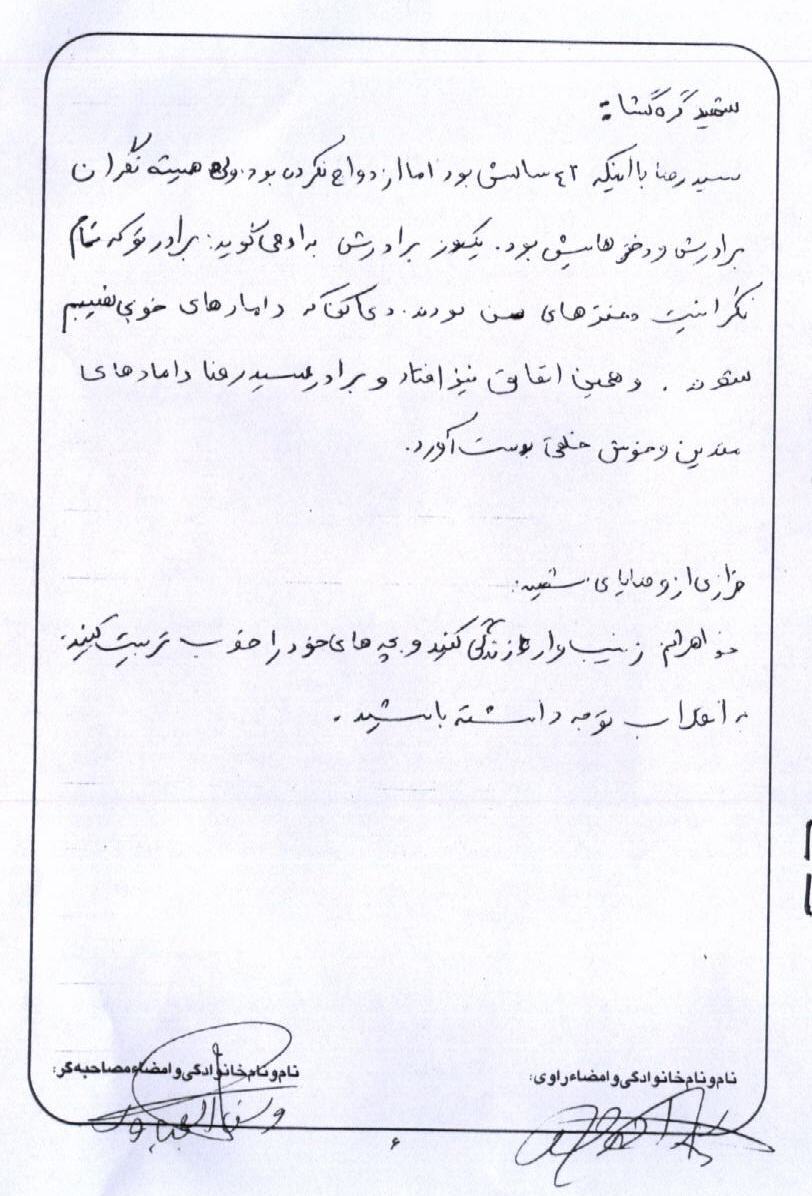 شهید گره گشا:
سید رضا با اینکه ۴۲ سالش بود اما ازدواج نکرده بود. ولی همیشه نگران
برادرش و دخترهایش بود. یکروز برادرش به او می گوید: برادر تو که تمام
نگرانیت دخترهای من بودند. دعا کن که دامادهای خوبی نصیبم
شوند. و همین اتفاق نیز افتاد و برادر سید رضا دامادهای
متدین و خوش خلقی بدست آورد.
فرازی از وصایای شهید:
خواهرانم زینب وار زندگی کنند و بچه های خود را خوب تربیت کنید.
به انقلاب توجه داشته باشید.
نام و نام خانوادگی و امضاء راوی:
نام و نام خانوادگی و امضاء مصاحبه گر:
۶